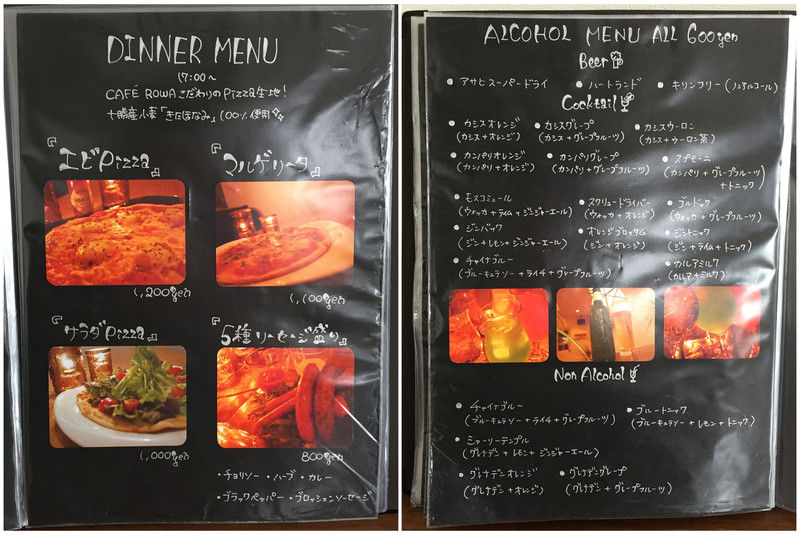 DINNER MENU
17:00〜
CAFÉ ROWAこだわりのPizza生地！
十勝産小麦「きたほなみ」100％使用
『エビPizza』
『マルゲリータ』
1,200yen
1,100yen
『サラダPizza』
『5種ソーセージ盛り』
1,000yen
800yen
・チョリソー ・ハーブ ・カレー
・ブラックペッパー ・ブロッシェンソーセージ
ALCOHOL MENU ALL 600yen
Beer
● アサヒスーパードライ ● ハートランド ● キリンフリー (ノンアルコール)
Cocktail
● カシスオレンジ ● カシスグレープ ● カシスウーロン
(カシス+オレンジ) (カシス+グレープフルーツ) (カシス+ウーロン茶)
● カンパリオレンジ ● カンパリグレープ ● スプモーニ
(カンパリ+オレンジ) (カンパリ+グレープフルーツ) (カンパリ+グレープフルーツ
+トニック)
● モスコミュール ● スクリュードライバー ● ブルドック
(ウォッカ+ライム+ジンジャーエール) (ウォッカ+オレンジ) (ウォッカ+グレープフルーツ)
● ジンバック ● オレンジブロッサム ● ジントニック
(ジン+レモン+ジンジャーエール) (ジン+オレンジ) (ジン+ライム+トニック)
● チャイナブルー ● カルアミルク
(ブルーキュラソー+ライチ+グレープフルーツ) (カルア+ミルク)
Non Alcohol
● チャイナブルー ● ブルートニック
(ブルーキュラソー+ライチ+グレープフルーツ) (ブルーキュラソー+レモン+トニック)
● シャーリーテンプル
(グレナデン+レモン+ジンジャーエール)
● グレナデンオレンジ ● グレナデングレープ
(グレナデン+オレンジ) (グレナデン+グレープフルーツ)